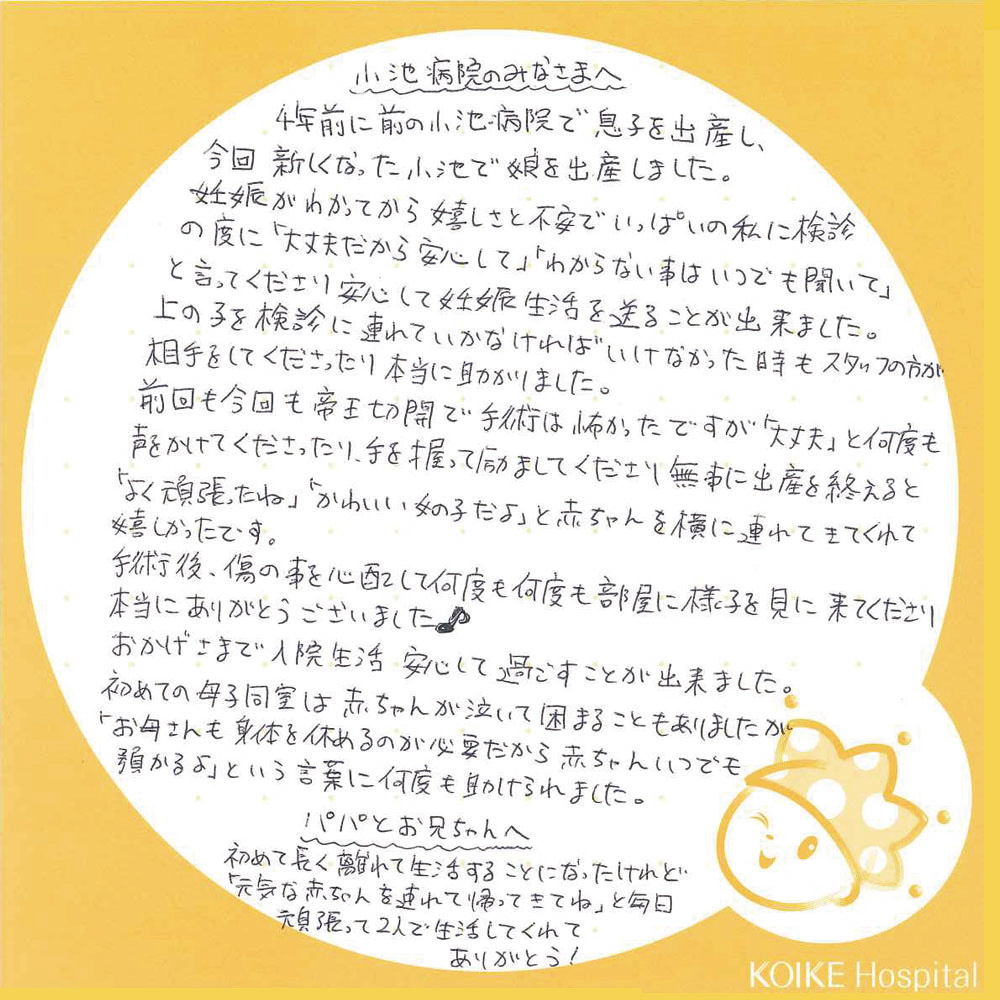 小池病院のみなさまへ
4年前に前の小池病院で息子を出産し、
今回新しくなった小池で娘を出産しました。
妊娠がわかってから嬉しさと不安でいっぱいの私に検診
の度に「大丈夫だから安心して」「わからない事はいつでも聞いて」
と言ってくださり安心して妊娠生活を送ることが出来ました。
上の子を検診に連れていかなければいけなかった時もスタッフの方が
相手をしてくださったり本当に助かりました。
前回も今回も帝王切開で手術は怖かったですが「大丈夫」と何度も
声をかけてくださったり、手を握って励ましてくださり無事に出産を終えると
「よく頑張ったね」「かわいい女の子だよ」と赤ちゃんを横に連れてきてくれて
嬉しかったです。
手術後、傷の事を心配して何度も何度も部屋に様子を見に来てくださり
本当にありがとうございました♪
おかげさまで入院生活安心して過ごすことが出来ました。
初めての母子同室は赤ちゃんが泣いて困まることもありましたが
「お母さんも身体を休めるのが必要だから赤ちゃんいつでも
預かるよ」という言葉に何度も助けられました。
パパとお兄ちゃんへ
初めて長く離れて生活することになったけれど
「元気な赤ちゃんを連れて帰ってきてね」と毎日
頑張って2人で生活してくれて
ありがとう!
KOIKE Hospital